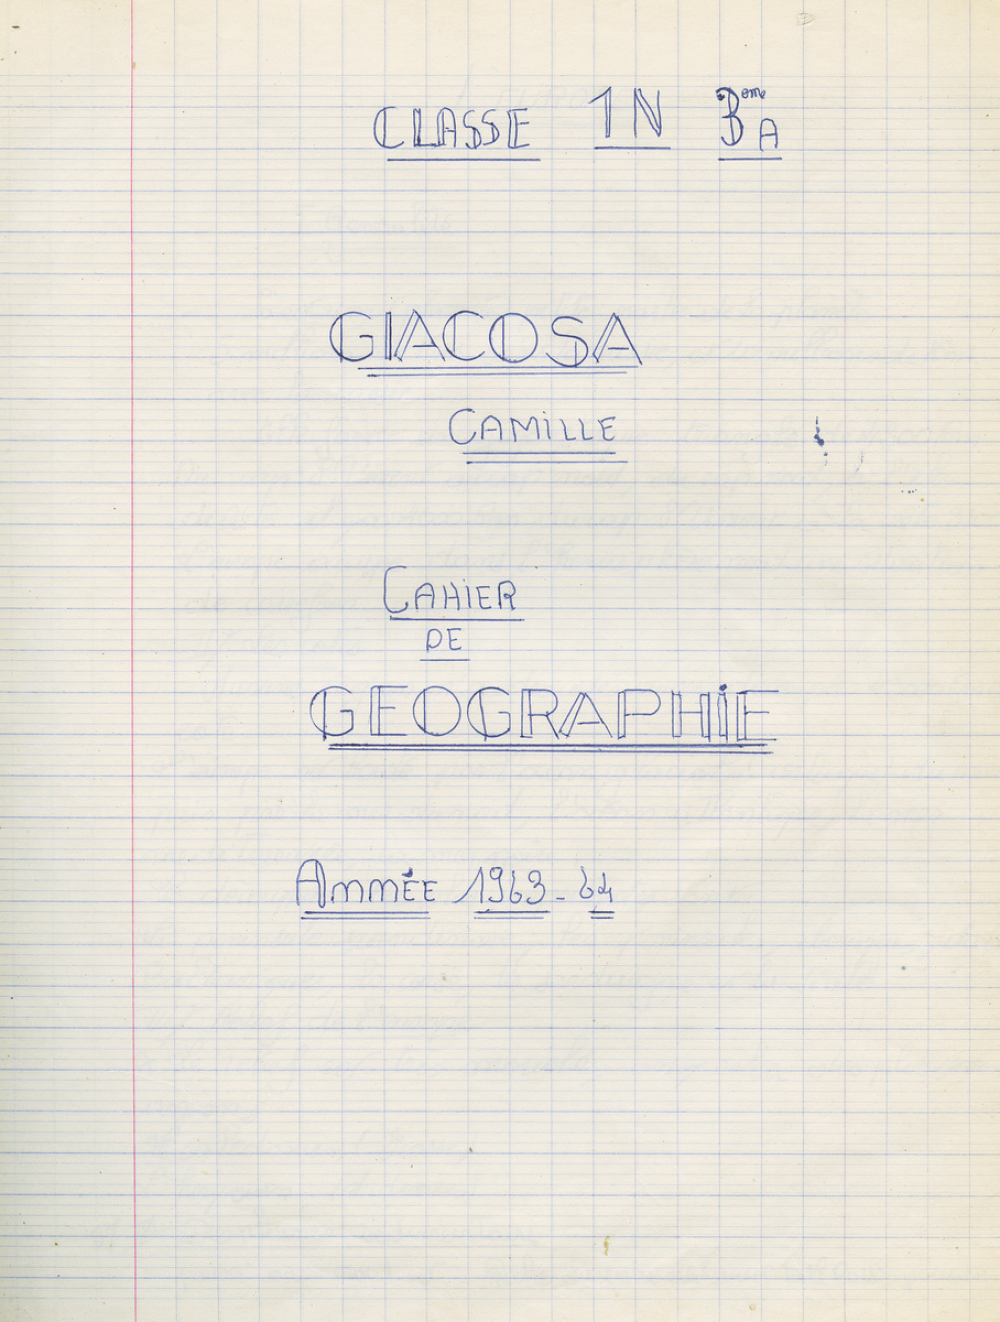 CLASSE 1N 3eme A
GIACOSA
CAMiLLE
CAHiER
DE
GEOGRAPHiE
AMMÉE 1963-64